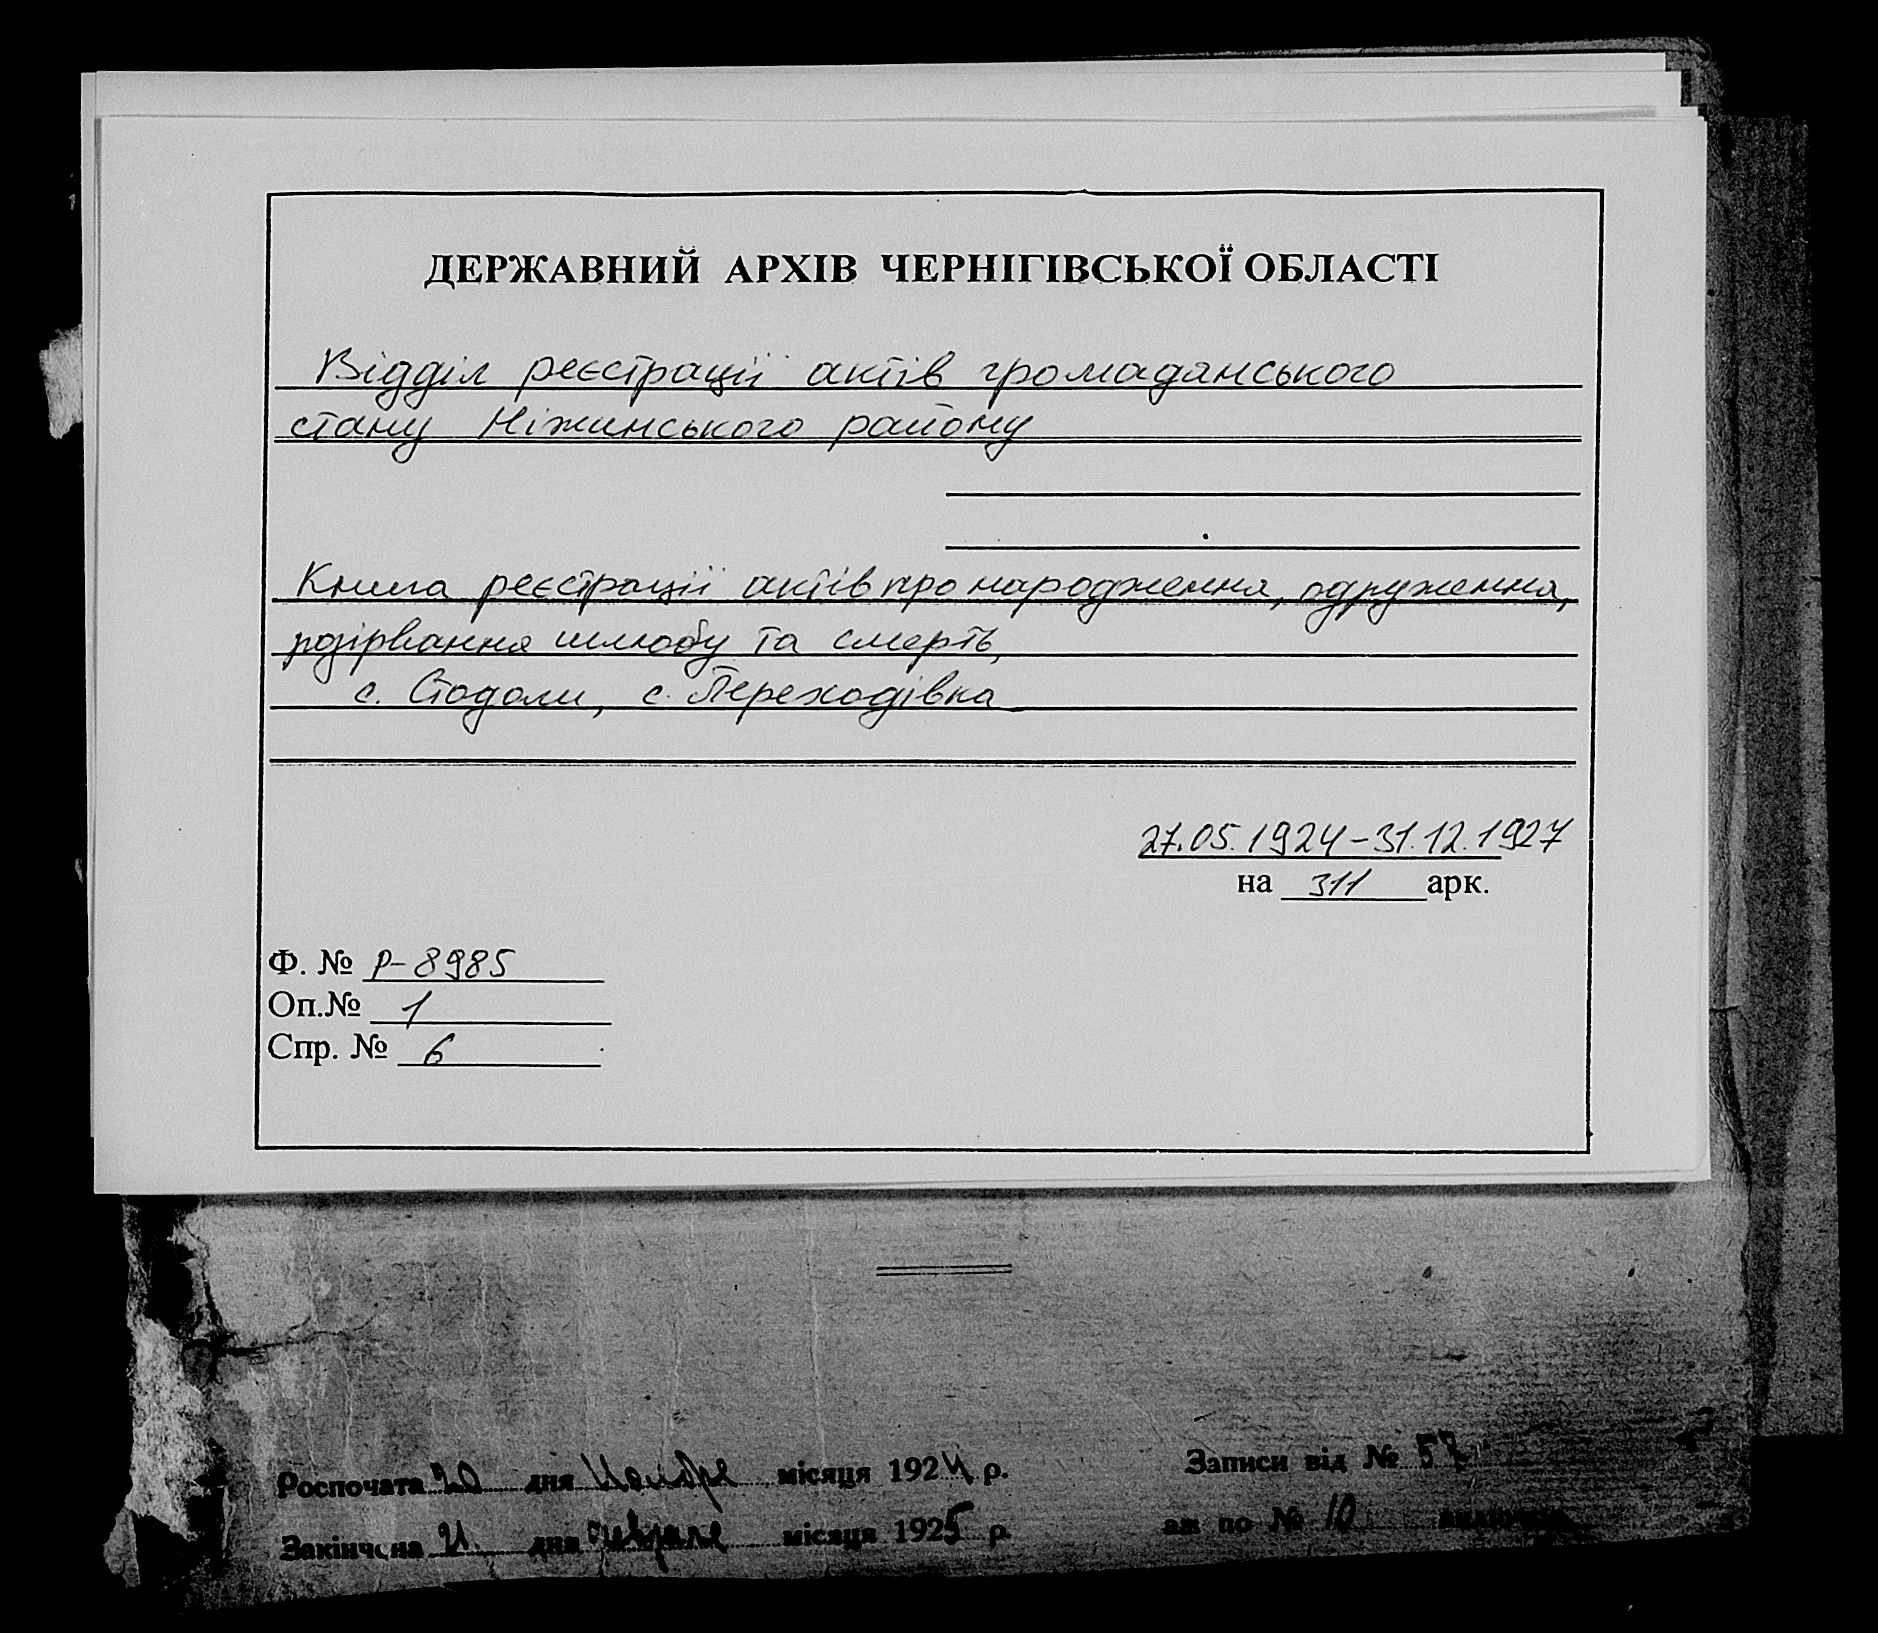 ДЕРЖАВНИЙ АРХІВ ЧЕРНІГІВСЬКОЇ ОБЛАСТІ
Відділ реєстрації актів громадянського
стану Ніжинського району
Книга реєстрації актів про народження, одруження,
розірвання шлюбу та смерть,
с. Стодоли, с. Переходівка
27.05.1924-31.12.1927
на 311 арк.
Ф. № Р-8985
Оп.№ 1
Спр. № 6
Роспочата 20 дня Ноября місяця 1924 р. Записи від № 57
Закінчена 21 дня января місяця 1925 р. аж по № 10